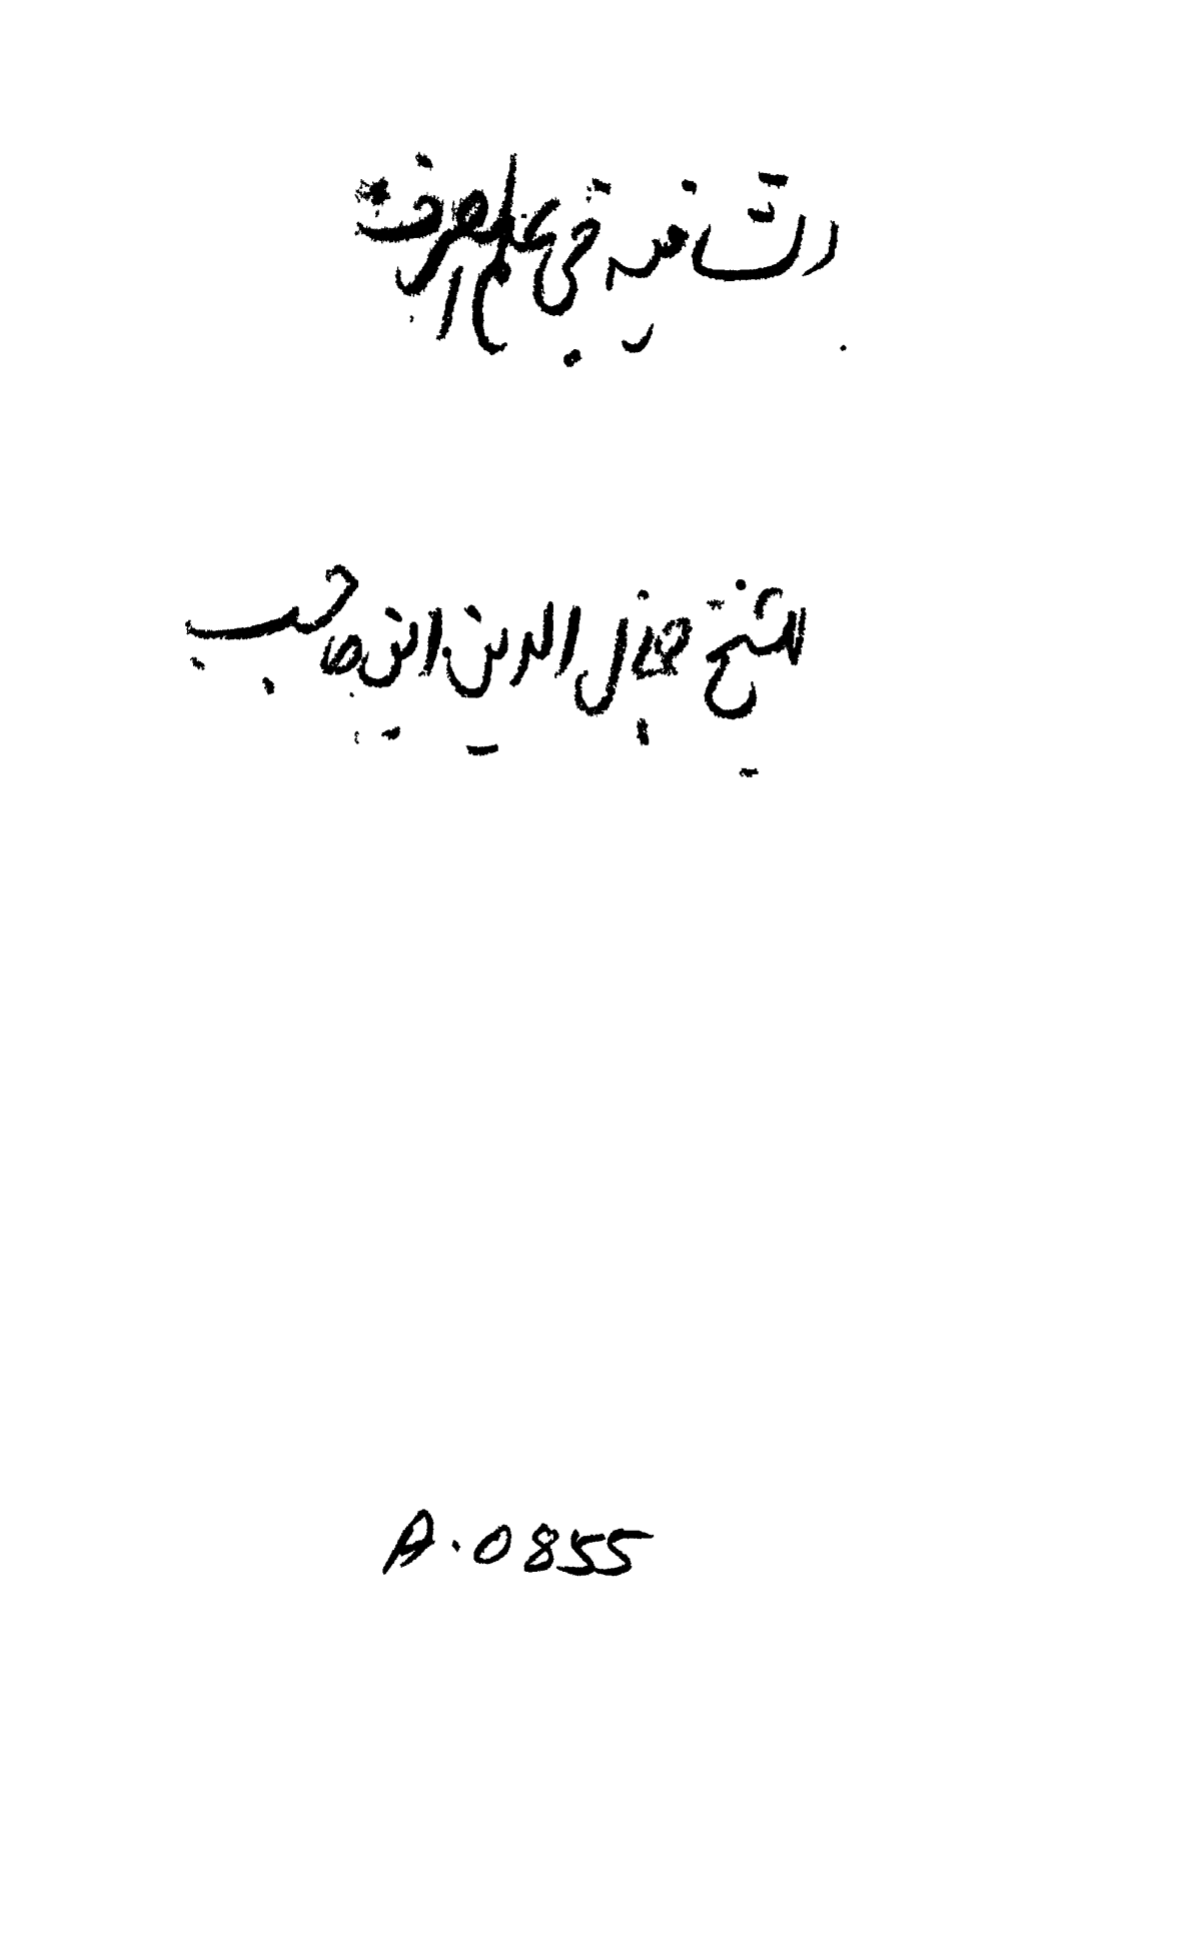 الشافية في علم الصرف
للشيخ جمال الدين ابن حاجب
A.0855